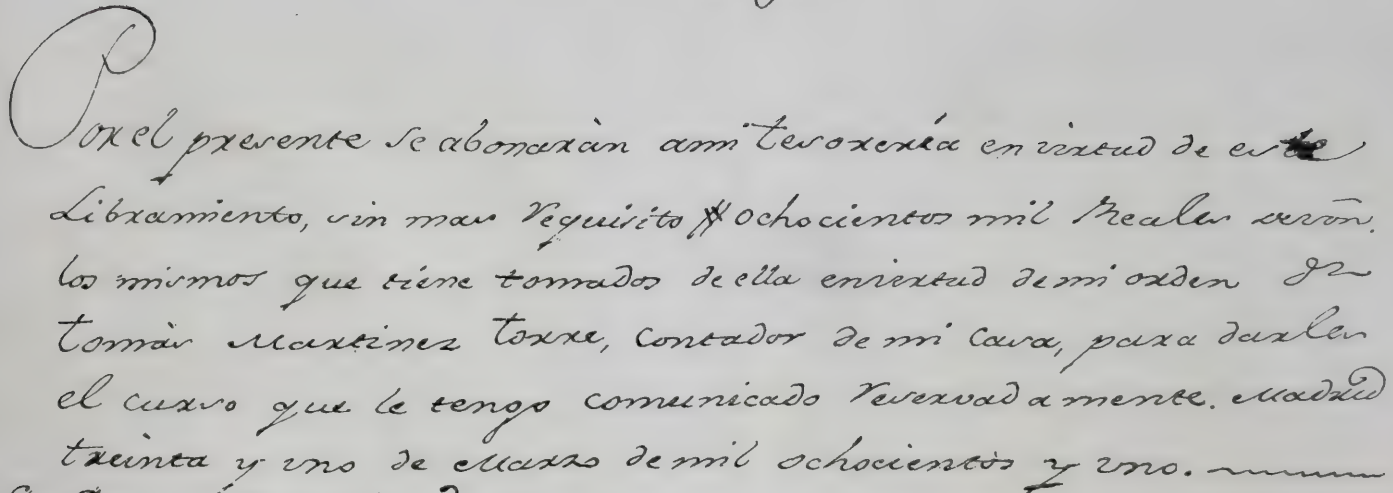 Por el presente se abonaràn a mi tesorerìa en virtud de este
Libramiento, sin mas requisito ochocientos mil Reales vellon.
los mismos que tiene tomados de ella en virtud de mi orden Dn
Tomàs Martinez Torre, Contador de mi Casa, para darles
el curso que le tengo comunicado reservadamente. Madrid
treinta y uno de Marzo de mil ochocientos y uno.